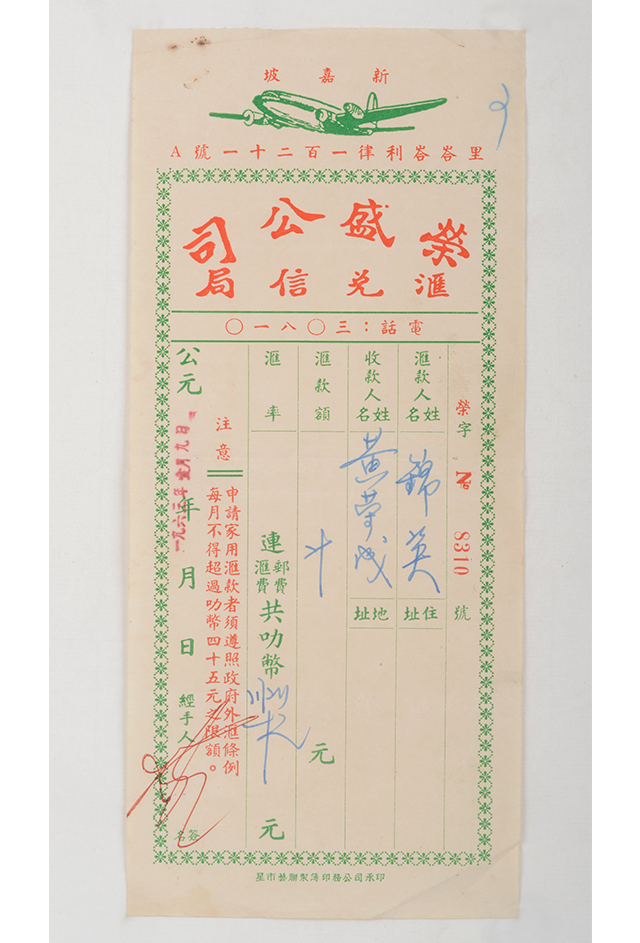 新嘉坡
里峇峇利律一百二十一號A
榮盛公司
滙兌信局
電話：三〇八一〇
榮字 No 8310 號
滙款人姓名 錦英 住址
收款人姓名 黃榮成 地址
滙款額 元
滙率 連郵費滙費共叻幣 元
注意
申請家用滙款者須遵照政府外滙條例
每月不得超過叻幣四十五元之限額。
公元 年 月 日 經手人 簽名
一九六三年壹月九日
星市藝聯製簿印務公司承印